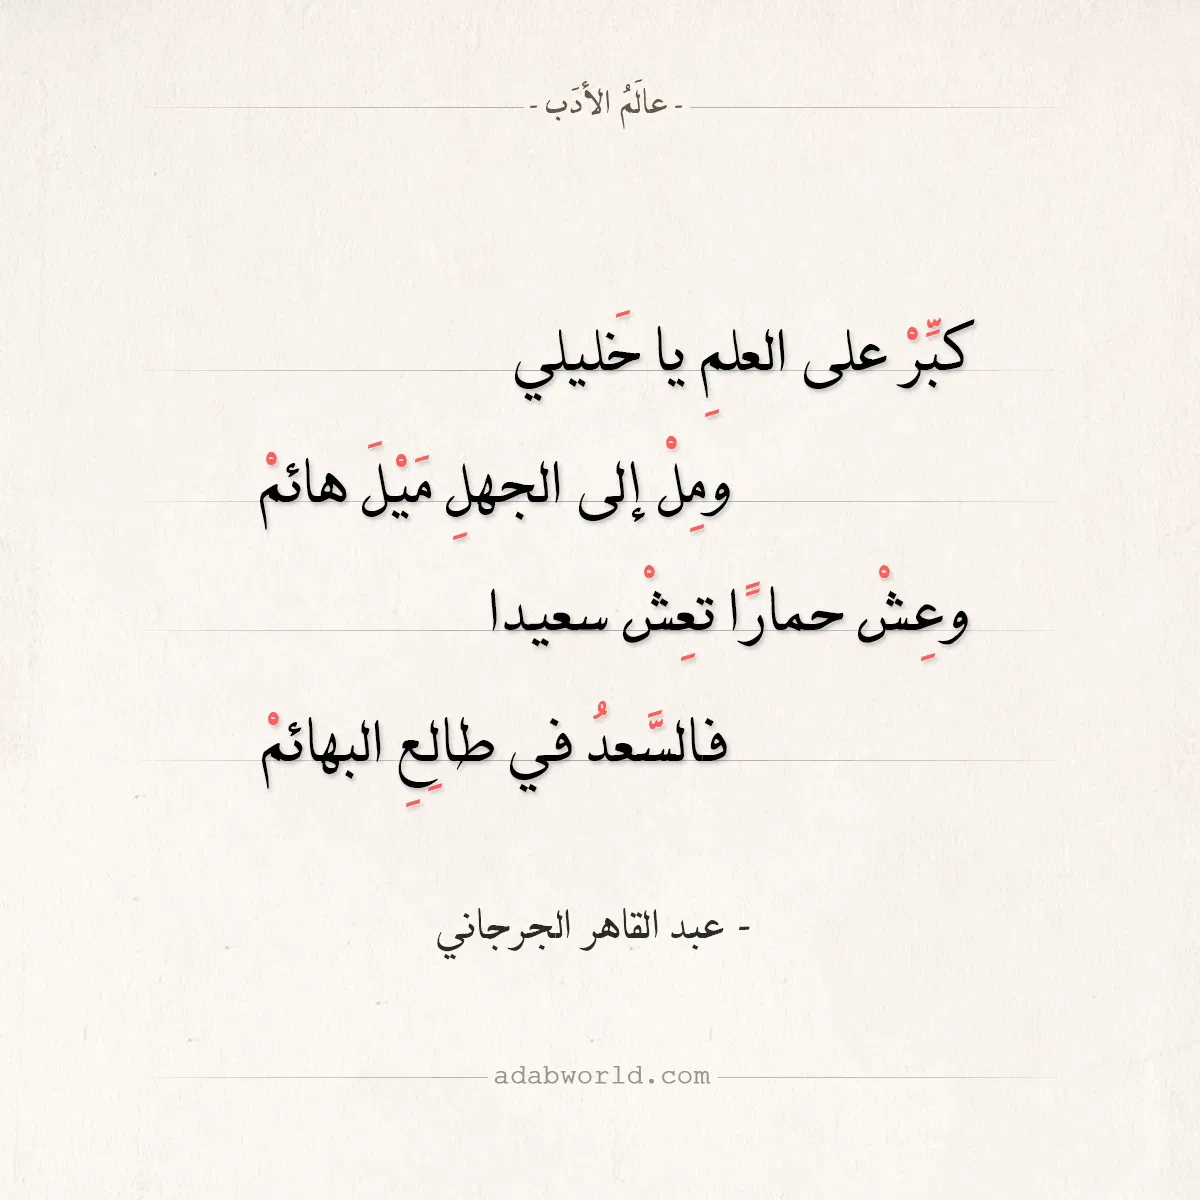 - عالَمُ الأدَب -
كبِّرْ على العلمِ يا خَليلي
ومِلْ إلى الجهلِ مَيْلَ هائمْ
وعِشْ حمارًا تعِشْ سعيدا
فالسَّعدُ في طالِعِ البهائمْ
- عبد القاهر الجرجاني
adabworld.com